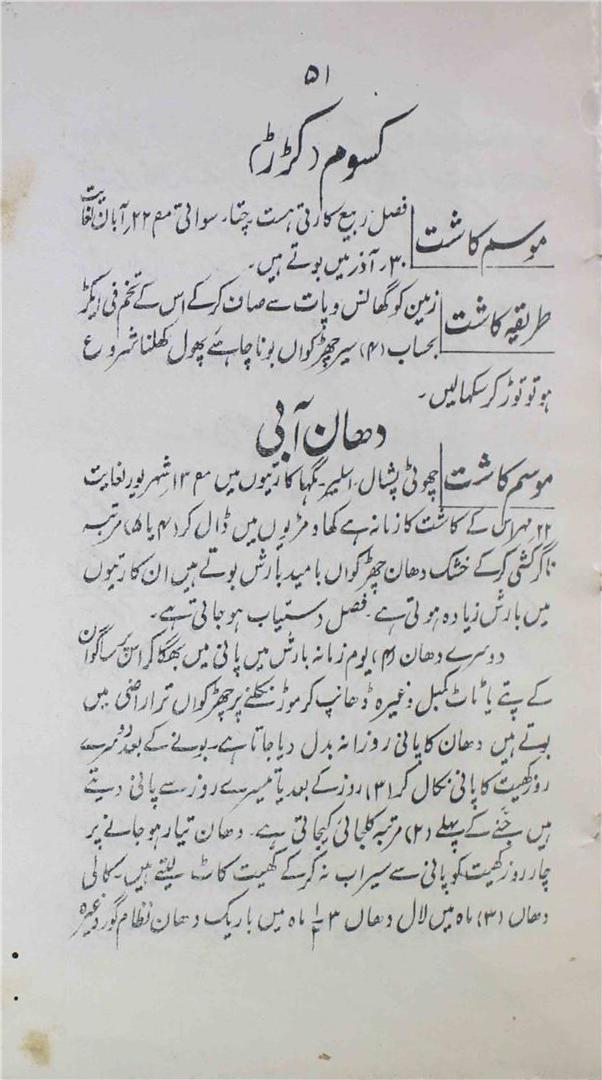 ۵۱
کسوم (کڑڑ)
موسم کاشت
فصل ربیع کارتی ہست۔ چتا۔ سواتی م ۲۲؍ آبان لغایت
۳۰۔ آذر میں بوتے ہیں۔
طریقہ کاشت
زمین کو گھانس و پات سے صاف کرکے اس کے تخم فی ایکڑ
بحساب (۴) سیر چھڑکواں بونا چاہئے پھول کھلنا شروع
ہو تو توڑ کر سکھالیں۔
دھان آبی
موسم کاشت
چھوٹی پشال۔ اسلیر۔ نگہا کارتیوں میں م ۱۳؍ شہریور لغایت
۲۲ مہر اس کے کاشت کا زمانہ ہے کھاد مڑیوں میں ڈال کر (۴ یا ۵) مرتبہ
ناگر کشی کرکے خشک دھان چھڑکواں بامید بارش بوتے ہیں ان کارتیوں
میں بارش زیادہ ہوتی ہے۔ فصل دستیاب ہو جاتی ہے۔
دوسرے دھان (۳) یوم زمانہ بارش میں پانی میں بھگا کر اس پر ساگوان
کے پتے یا ٹاٹ کمبل وغیرہ ڈھانپ کر موڑ نکلنے پر چھڑکواں تر اراضی میں
بوتے ہیں دھان کا پانی روزانہ بدل دیا جاتا ہے۔ بونے کے بعد دوسرے
روز کھیت کا پانی نکال کر (۳) روز کے بعد یا تیسرے روز سے پانی دیتے
ہیں جننے کے پہلے (۲) مرتبہ کلپائی کیجاتی ہے۔ دھان تیار ہو جانے پر
چار روز کھیت کو پانی سے سیراب نہ کرکے کھیت کاٹ لیتے ہیں۔ سکالی
دھاں (۳) ماہ میں لال دھاں ۳ ۱/۲ ماہ میں باریک دھان نظام گور وغیرہ